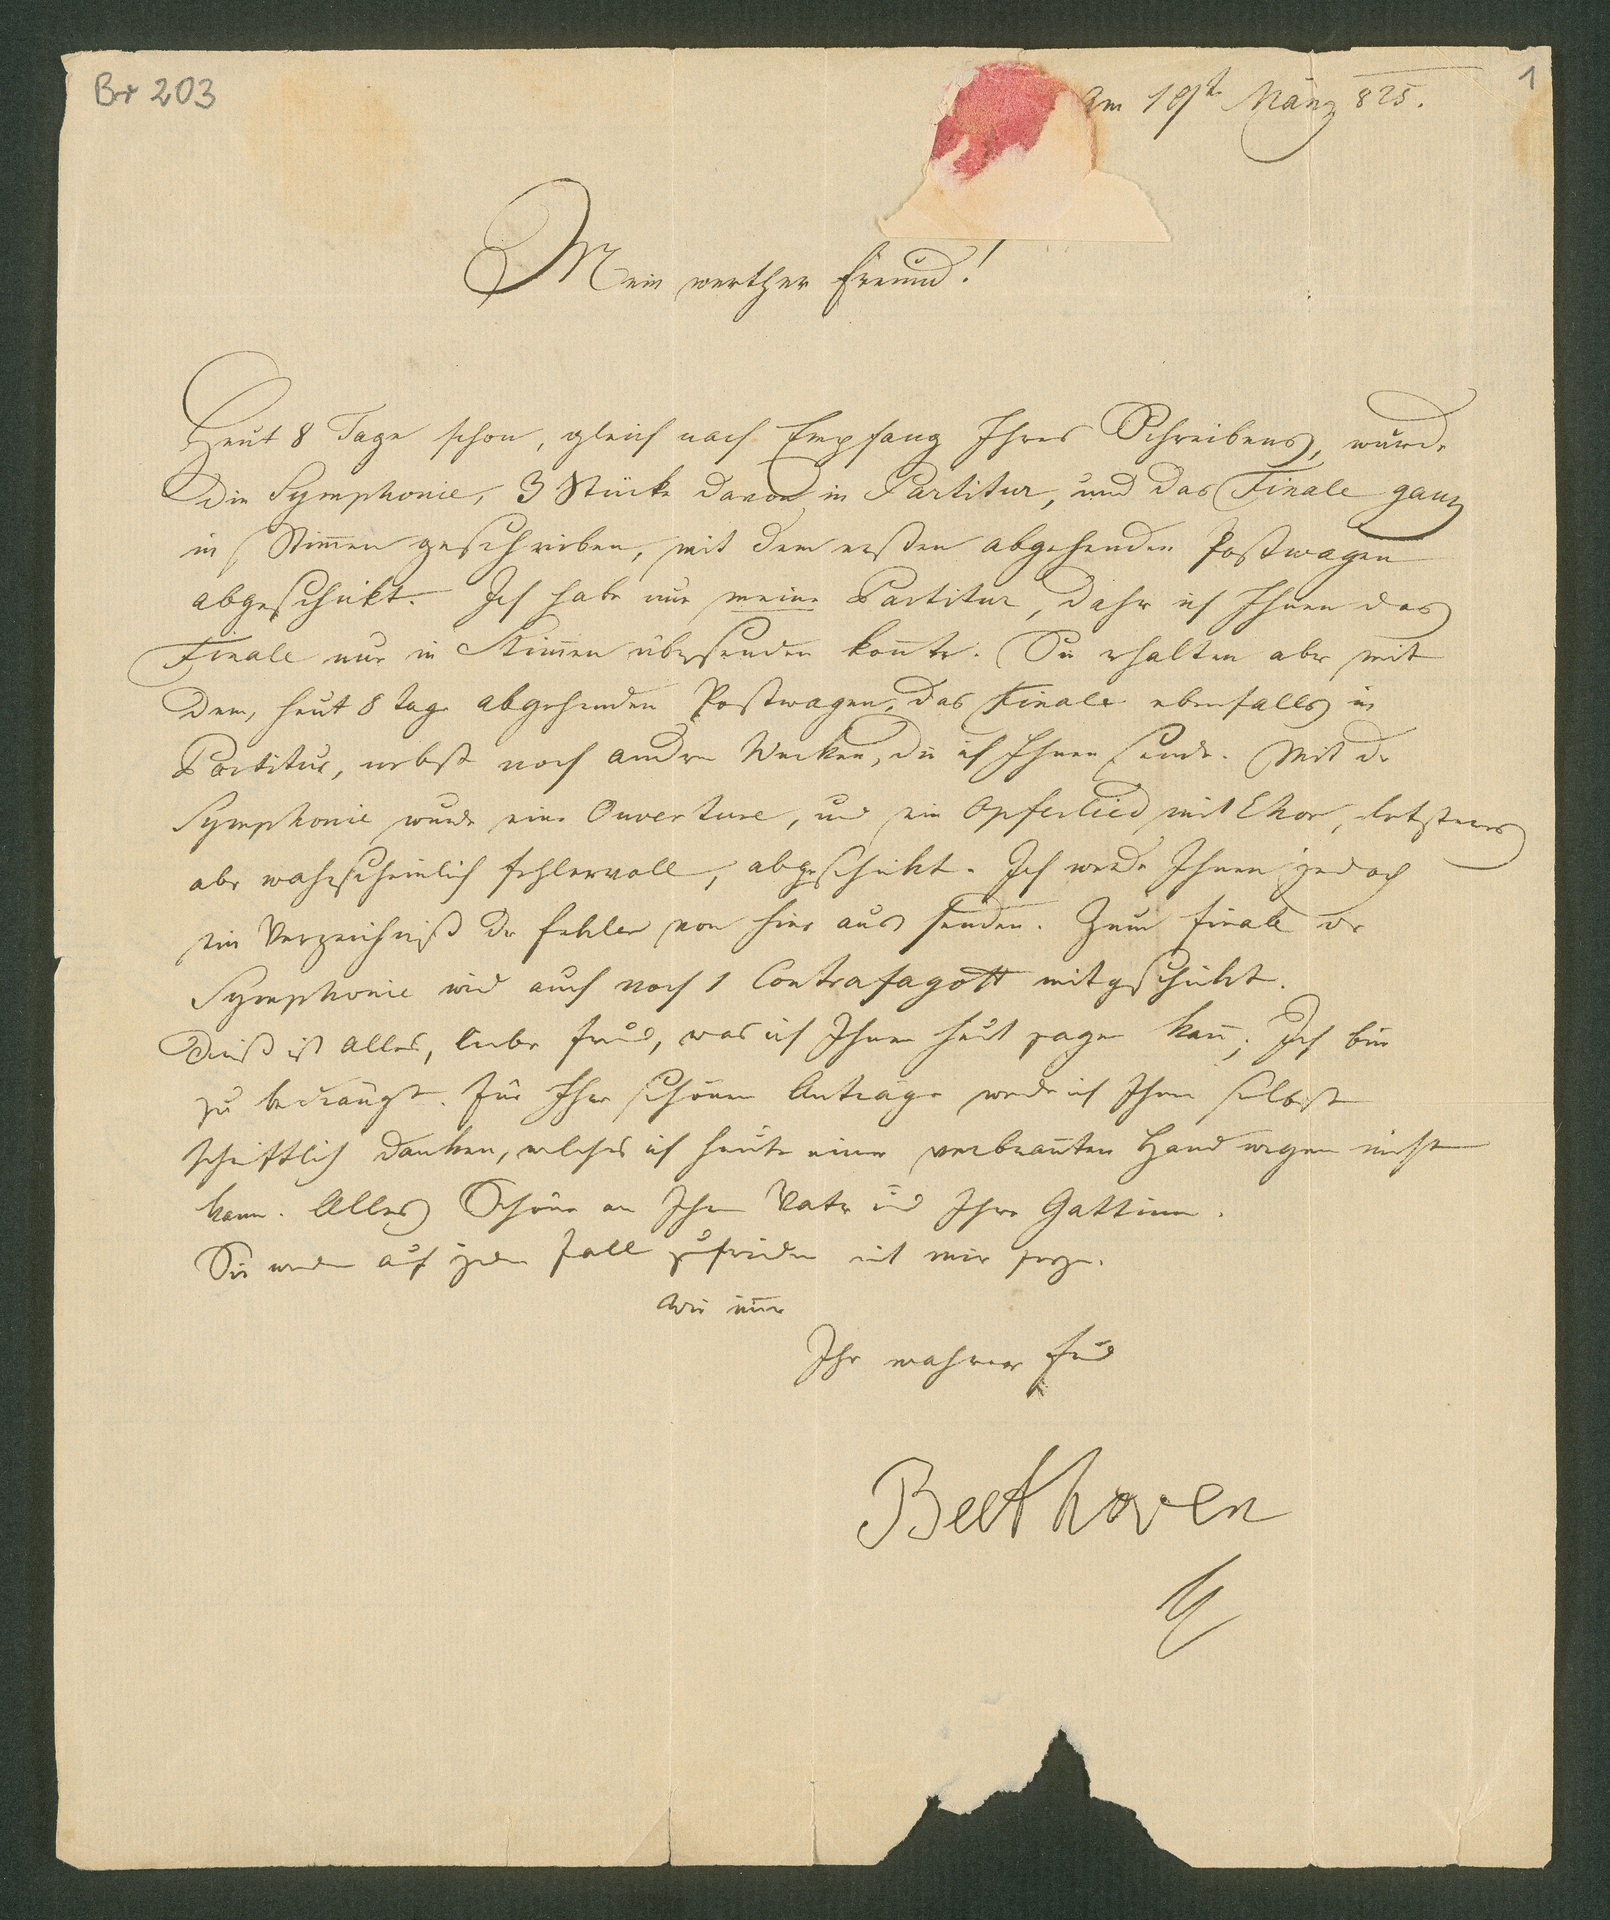 Br 203
1
Am 19t März 825.
Mein werther Freund!
Heut 8 Tage schon, gleich nach Empfang Ihres Schreibens, wurde
die Symphonie, 3 Stücke davon in Partitur, und das Finale ganz
in Stim̄en geschrieben, mit dem ersten abgehenden Postwagen
abgeschickt. Ich habe nur meine Partitur, daher ich Ihnen das
Finale nur in Stim̄en übersenden kon̄te. Sie erhalten aber mit
dem, heut 8 Tage abgehenden Postwagen, das Finale ebenfalls in
Partitur, nebst noch andren Werken, die ich Ihnen sende. Mit der
Symphonie wurde eine Ouverture, und ein Opferlied mit Chor, letzteres
aber wahrscheinlich fehlervoll, abgeschikt. Ich werde Ihnen jedoch
ein Verzeichniß der Fehler von hier aus senden. Zum Finale der
Symphonie wird auch noch 1 Contrafagott mitgeschikt.
Dieß ist alles, lieber Freund, was ich Ihnen heut sagen kan̄; Ich bin
zu bedrängt. Für Ihre schönen Anträge werde ich Ihnen selbst
schriftlich danken, welches ich heute einer verbran̄ten Hand wegen nicht
kann. Alles Schöne an Ihren Vater und Ihre Gattinn.
Sie werden auf jeden Fall zufrieden mit mir seyn.
Wie im̄er
Ihr wahrer Freund
Beethoven